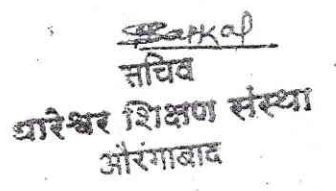 सचिव
धारेश्वर शिक्षण संस्था
औरंगाबाद